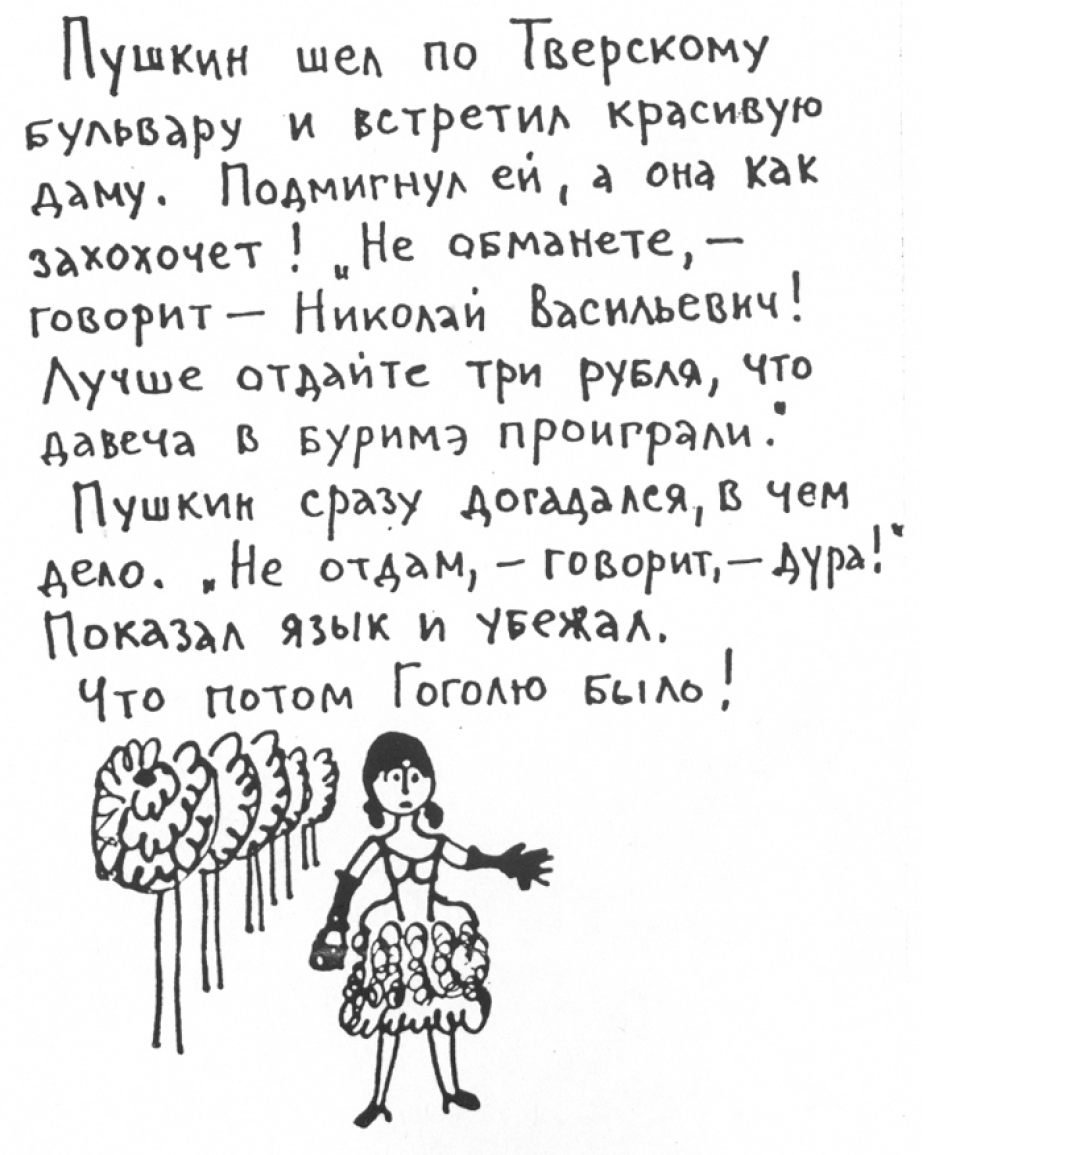 Пушкин шел по Тверскому
бульвару и встретил красивую
даму. Подмигнул ей, а она как
захохочет! „Не обманете, —
говорит — Николай Васильевич!
Лучше отдайте три рубля, что
давеча в буримэ проиграли."
Пушкин сразу догадался, в чем
дело. „Не отдам, — говорит, — дура!"
Показал язык и убежал.
Что потом Гоголю было!